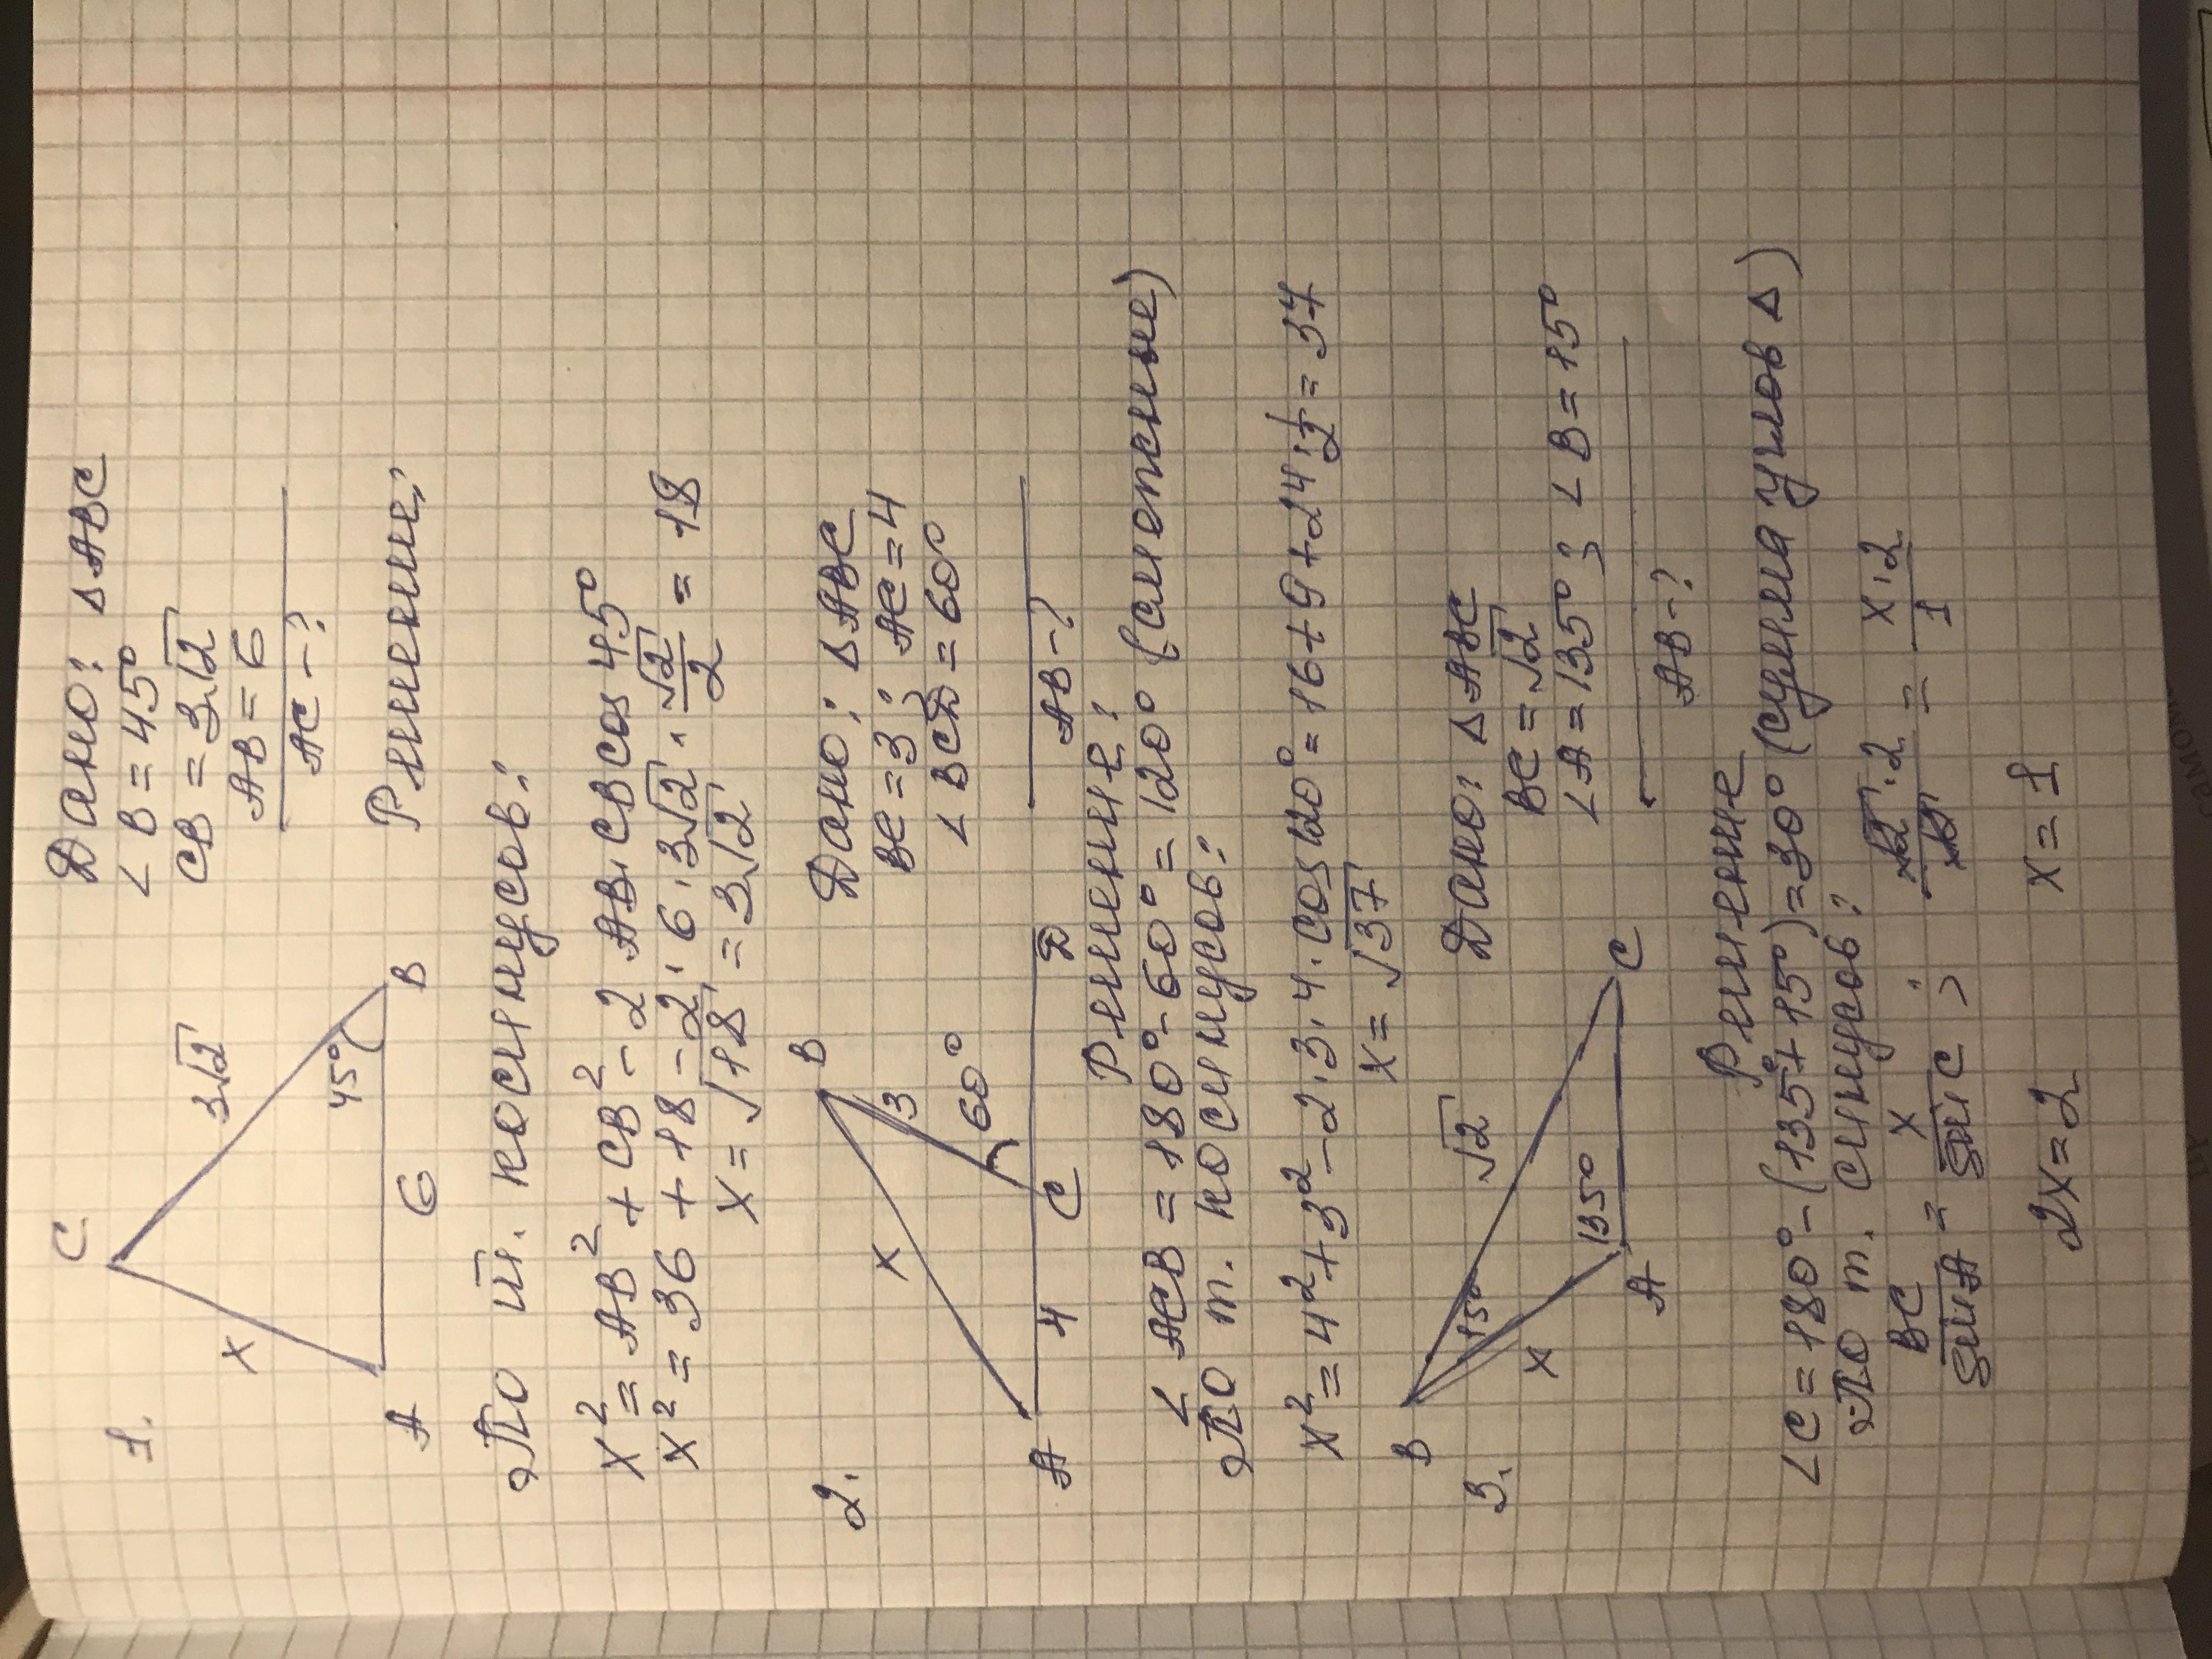 1.
C
3√2
x
45°
A
6
B
Дано: ΔABC
∠B = 45°
CB = 3√2
AB = 6
AC - ?
Решение:
По т. косинусов:
x² = AB² + CB² - 2 AB·CB cos 45°
x² = 36 + 18 - 2·6·3√2·√2/2 = 18
x = √18 = 3√2
2.
B
x
3
60°
A
4
C
D
Дано: ΔABC
BC = 3; AC = 4
∠BCD = 60°
AB - ?
Решение:
∠ACB = 180° - 60° = 120° (смежные)
По т. косинусов:
x² = 4² + 3² - 2·3·4·cos 120° = 16 + 9 + 24·1/2 = 37
x = √37
3.
B
15°
√2
x
135°
A
C
Дано: ΔABC
BC = √2
∠A = 135°; ∠B = 15°
AB - ?
Решение
∠C = 180° - (135° + 15°) = 30° (сумма углов Δ)
По т. синусов:
BC/sin A = x/sin C; √2·2/√2 = x·2/1
2x = 2 x = 1